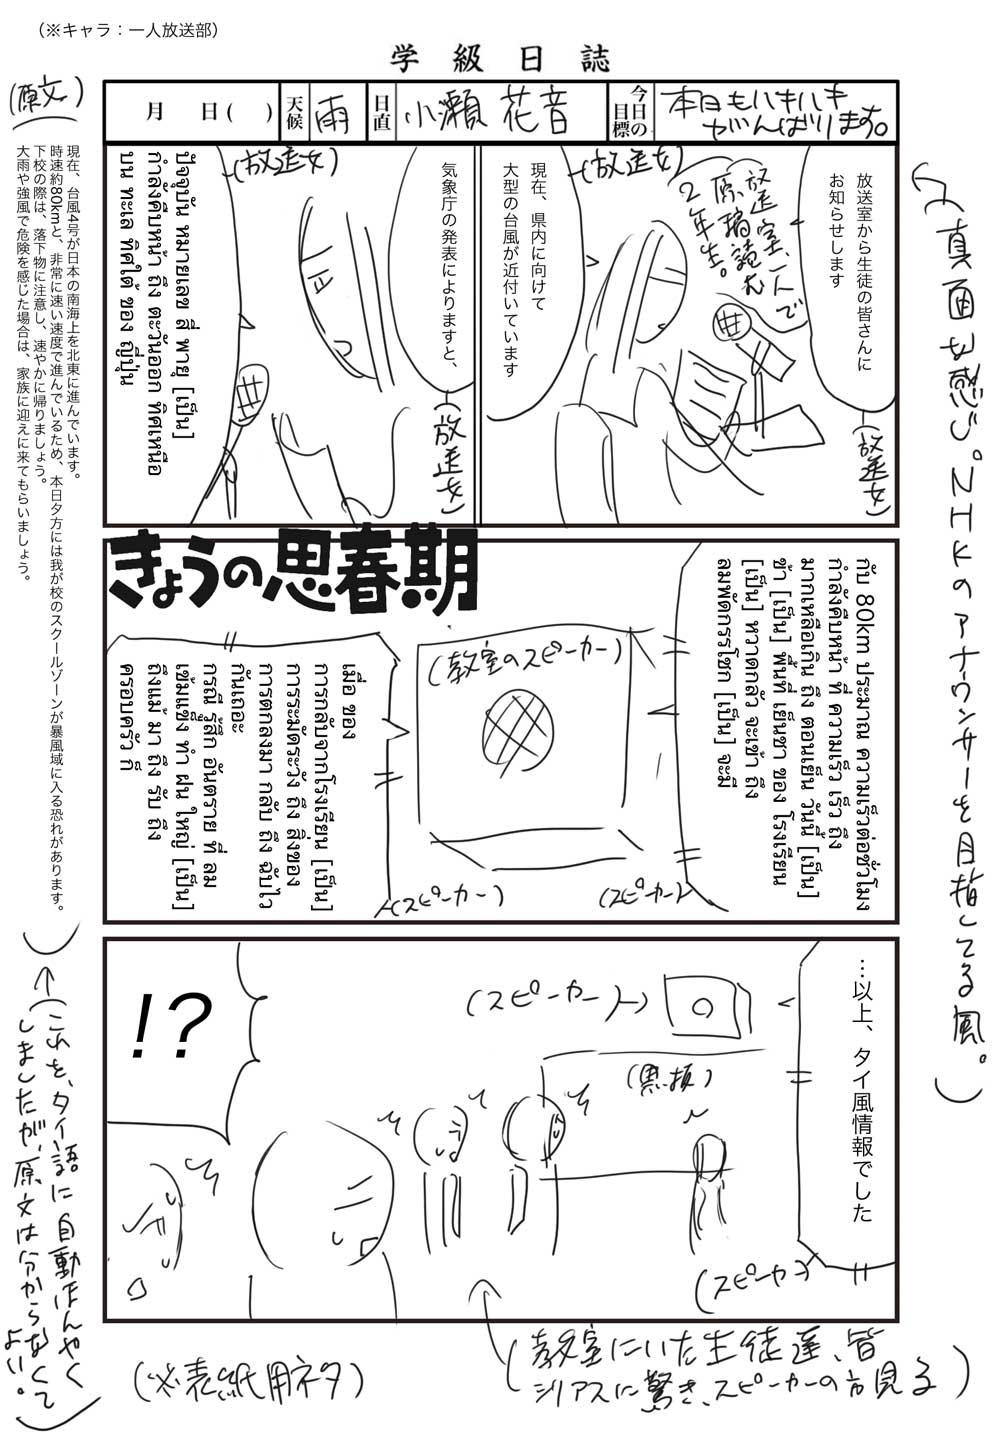 (※キャラ：一人放送部)
学級日誌
月　日(　)
天候
雨
日直
小瀬 花音
今日の目標
本日もハキハキ
がんばります。
放送室から生徒の皆さんに
お知らせします
(放送女)
放送室、一人で
原稿読む
2年生。
(放送女)
現在、県内に向けて
大型の台風が近付いています
気象庁の発表によりますと、
(放送女)
(放送女)
ปัจจุบัน หมายเลข สี่ พายุ [เป็น]
กำลังคืบหน้า ถึง ตะวันออก ทิศเหนือ
บน ทะเล ทิศใต้ ของ ญี่ปุ่น
きょうの思春期
กับ 80km ประมาณ ความเร็วต่อชั่วโมง
กำลังคืบหน้า ที่ ความเร็ว เร็ว ถึง
มากเหลือเกิน ถึง ตอนเย็น วันนี้ [เป็น]
ช้า [เป็น] พื้นที่ เยินชา ของ โรงเรียน
[เป็น] หวาดกลัว จะเข้า ถึง
ลมพัดกรรโชก [เป็น] จะมี
(スピーカー)
(教室のスピーカー)
เมื่อ ของ
การกลับจากโรงเรียน [เป็น]
การระมัดระวัง ถึง สิ่งของ
การตกลงมา กลับ ถึง ฉับไว
กันเถอะ
กรณี รู้สึก อันตราย ที่ ลม
เข้มแข็ง ทำ ฝน ใหญ่ [เป็น]
ถึงแม้ มา ถึง รับ ถึง
ครอบครัว ก็
(スピーカー)
…以上、タイ風情報でした
(スピーカー)
(スピーカー)
(黒板)
!?
(教室にいた生徒達、皆
シリアスに驚き、スピーカーの方見る)
(※表紙用ネタ)
(↑真面目な感じ。NHKのアナウンサーを目指してる風。)
(原文)
現在、台風4号が日本の南海上を北東に進んでいます。
時速約80kmと、非常に速い速度で進んでいるため、本日夕方には我が校のスクールゾーンが暴風域に入る恐れがあります。
下校の際は、落下物に注意し、速やかに帰りましょう。
大雨や強風で危険を感じた場合は、家族に迎えに来てもらいましょう。
↑(これを、タイ語に自動ほんやく
しましたが、原文は分からなくて
よい。)